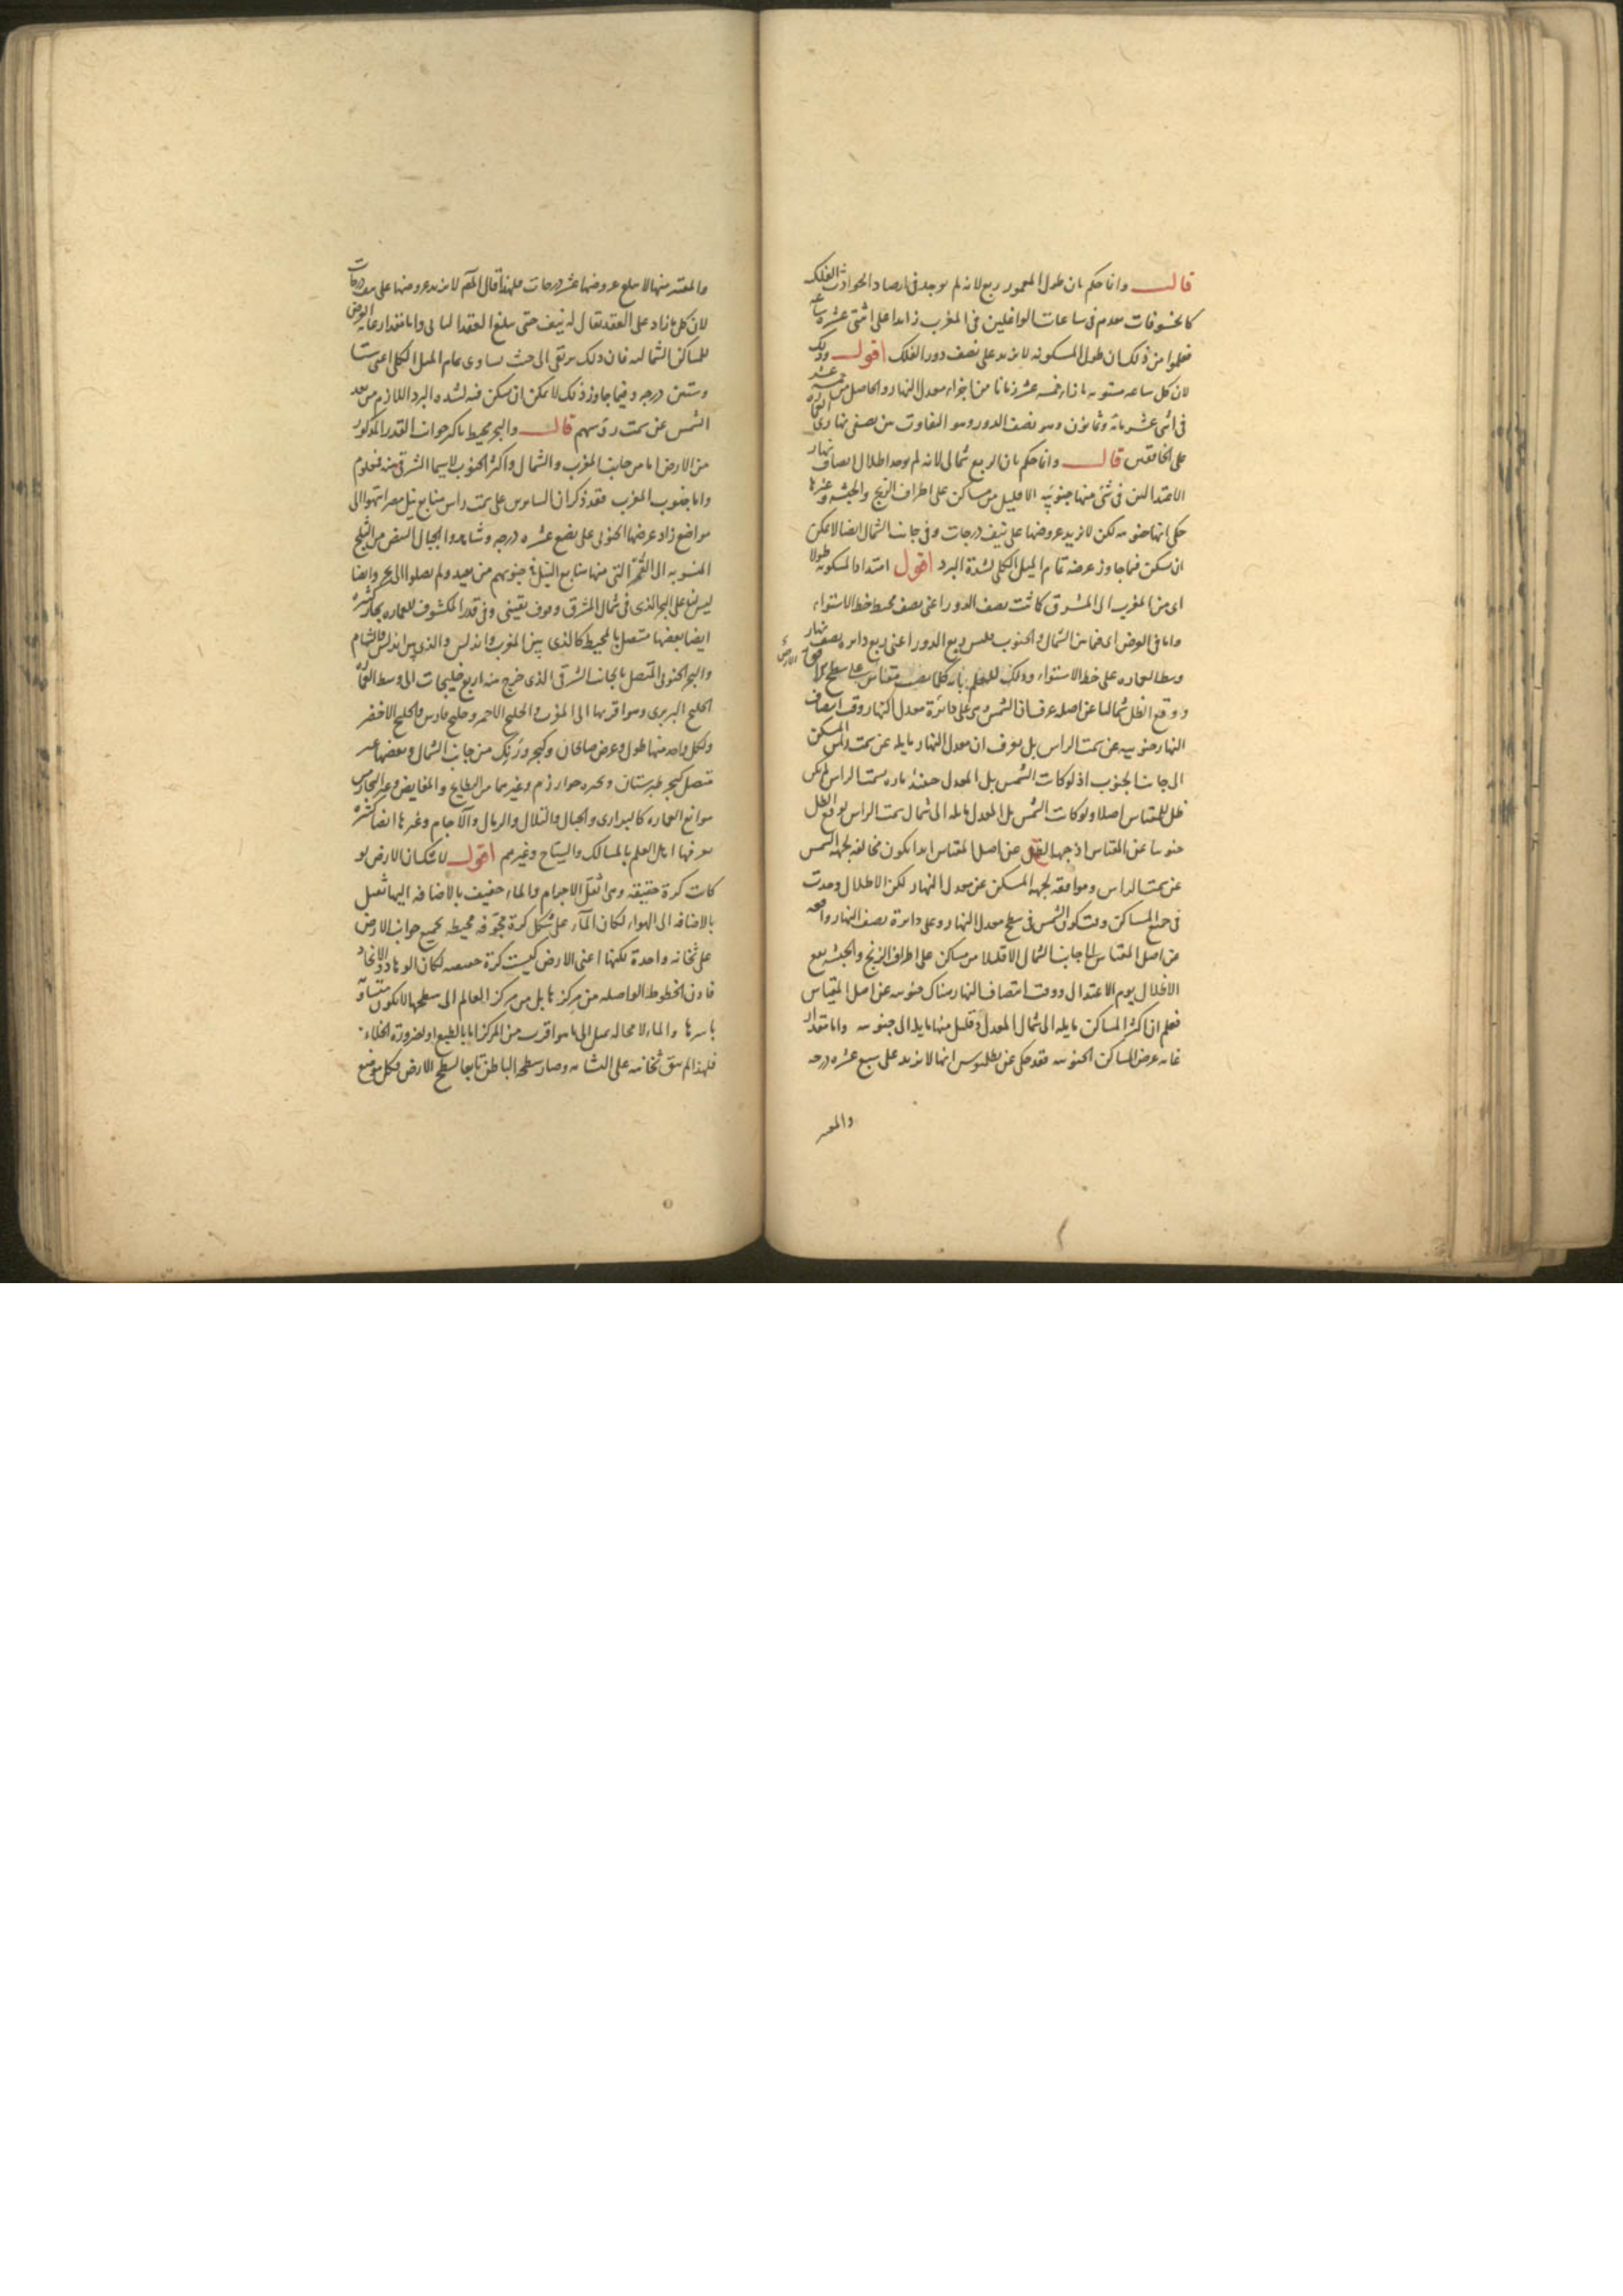 قال وانما حكم بان طول المعمور ربع لانه لم يوجد فى ارصاد الحوادث الفلكية
كالخسوفات تقدم فى ساعات الواغلين فى المغرب زايدا على اثنى عشرة ساعة
فعلموا من ذلك ان طول المسكونه لا يزيد على نصف دور الفلك اقول وذلك
لان كل ساعه مستويه بازاء خمسة عشر زمانا من اجزاء معدل النهار والحاصل من خمسة عشر
فى اثنى عشر مائة وثمانون وهو نصف الدور وهو التفاوت بين نصفى نهارى
على الخافقين قال وانما حكم بان الربع شمالى لانه لم يوجد اظلال انصاف نهار
الاعتدالين فى شئ منها جنوبيه الا قليل من مساكن على اطراف الزنج والحبشه وغيرها
حكى انها جنوبيه لكن لا يزيد عروضها على نيف درجات وفى جانب الشمال ايضا لا يمكن
ان يسكن فيما جاوز عرضه تمام الميل الكلى لشدة البرد اقول امتداد المسكونه طولا
اى من المغرب الى المشرق كانت نصف الدور اعنى نصف محيط خط الاستواء
واما فى العرض اى فيما بين الشمال والجنوب فليس ربع الدور اعنى ربع دايره نصف نهار
وسط العماره على خط الاستواء وذلك للعلم بانه كلما نصب مقياس على سطح الافق
ووقع الظل شماليا عن اصله عرف ان الشمس وهى على دائرة معدل النهار وقت انتصاف
النهار جنوبيه عن سمت الراس بل يعرف ان معدل النهار مايله عن سمت راس المسكن
الى جانب الجنوب اذ لو كانت الشمس بل المعدل حينئذ ماره بسمت الراس لم يكن
ظل للمقياس اصلا ولو كانت الشمس بل المعدل مايله الى شمال سمت الراس لوقع الظل
جنوبيا عن المقياس اذ جهة الظل عن اصل المقياس ابدا يكون مخالفه لجهة الشمس
عن سمت الراس وموافقه لجهة المسكن عن معدل النهار لكن الاظلال وجدت
فى جميع المساكن وقت كون الشمس فى سطح معدل النهار وعلى دايرة نصف النهار واقعه
من اصل المقياس الى جانب الشمال الا قليلا من مساكن على اطراف الزنج والحبشه يقع
الاظلال يوم الاعتدال ووقت انتصاف النهار هناك جنوبيه عن اصل المقياس
فعلم ان اكثر المساكن مايله الى شمال المعدل وقليل منها مايله الى جنوبيه واما مقدار
غايه عرض المساكن الجنوبيه فقد حكى عن بطلميوس انها لا يزيد على سبع عشره درجه
والمعتبر
والمعتبر منها لا يبلغ عروضها عشر درجات فلهذا قال المص لا يزيد عروضها على نيف درجات
لان كل ما زاد على العقد يقال له نيف حتى يبلغ العقد الثانى واما مقدار غاية العرض
للمساكن الشماليه فان ذلك يرتقى الى حيث يساوى تمام الميل الكلى اعنى ستا
وستين درجه وفيما جاوز ذلك لا يمكن ان يسكن فيه لشده البرد اللازم من بعد
الشمس عن سمت رؤسهم قال والبحر محيط باكثر جوانب القدر المذكور
من الارض اما من جانب المغرب والشمال واكثر الجنوب لا سيما الشرقى منه فمعلوم
واما جنوب المغرب فقد ذكر ان السايرين على سمت راس منابع نيل مصر انتهوا الى
مواضع زاد عرضها الجنوبى على بضع عشره درجه وشاهدوا الجبال البيض من الثلج
المنسوبه الى القمر التى منها منابع النيل فى جنوبهم من بعيد ولم يصلوا الى بحر وايضا
ليس لنا على البحر الذى فى شمال المشرق وقوف يقينى وفى قدر المكشوف للعماره بحار كثيرة
ايضا بعضها متصل بالمحيط كالذى بين المغرب واندلس والذى بين اندلس والشام
والبحر الجنوبى المتصل بالجانب الشرقى الذى خرج منه اربع خليجات الى وسط العماره
الخليج البربرى وهو اقربها الى المغرب والخليج الاحمر وخليج فارس والخليج الاخضر
ولكل واحد منها طول وعرض صالحان وكبحر ورنك من جانب الشمال وبعضها غير
متصل كبحر طبرستان وبحره خوارزم وغيرهما من البطايح والمغايض وغير البحار من
موانع العماره كالبرارى والجبال والتلال والرمال والآجام وغيرها ايضا كثيرة
يعرفها اهل العلم بالمسالك والسياح وغيرهم اقول لا شك ان الارض لو
كانت كرة حقيقه وهى اثقل الاجرام والماء خفيف بالاضافه اليها ثقيل
بالاضافه الى الهواء لكان الماء على شكل كرة مجوفه محيطه بجميع جوانب الارض
على ثخانه واحدة لكنها اعنى الارض ليست كرة حقيقيه لكان الوهاد والانجاد
فاذن الخطوط الواصله من مركزها بل من مركز العالم الى سطحها لا تكون متساوية
باسرها والماء لا محاله يميل الى ما هو اقرب من المركز اما بالطبع او لضرورة الخلاء
فلهذا لم يبق ثخانته على التشابه وصار سطحه الباطن تابعا لسطح الارض فكل موضع